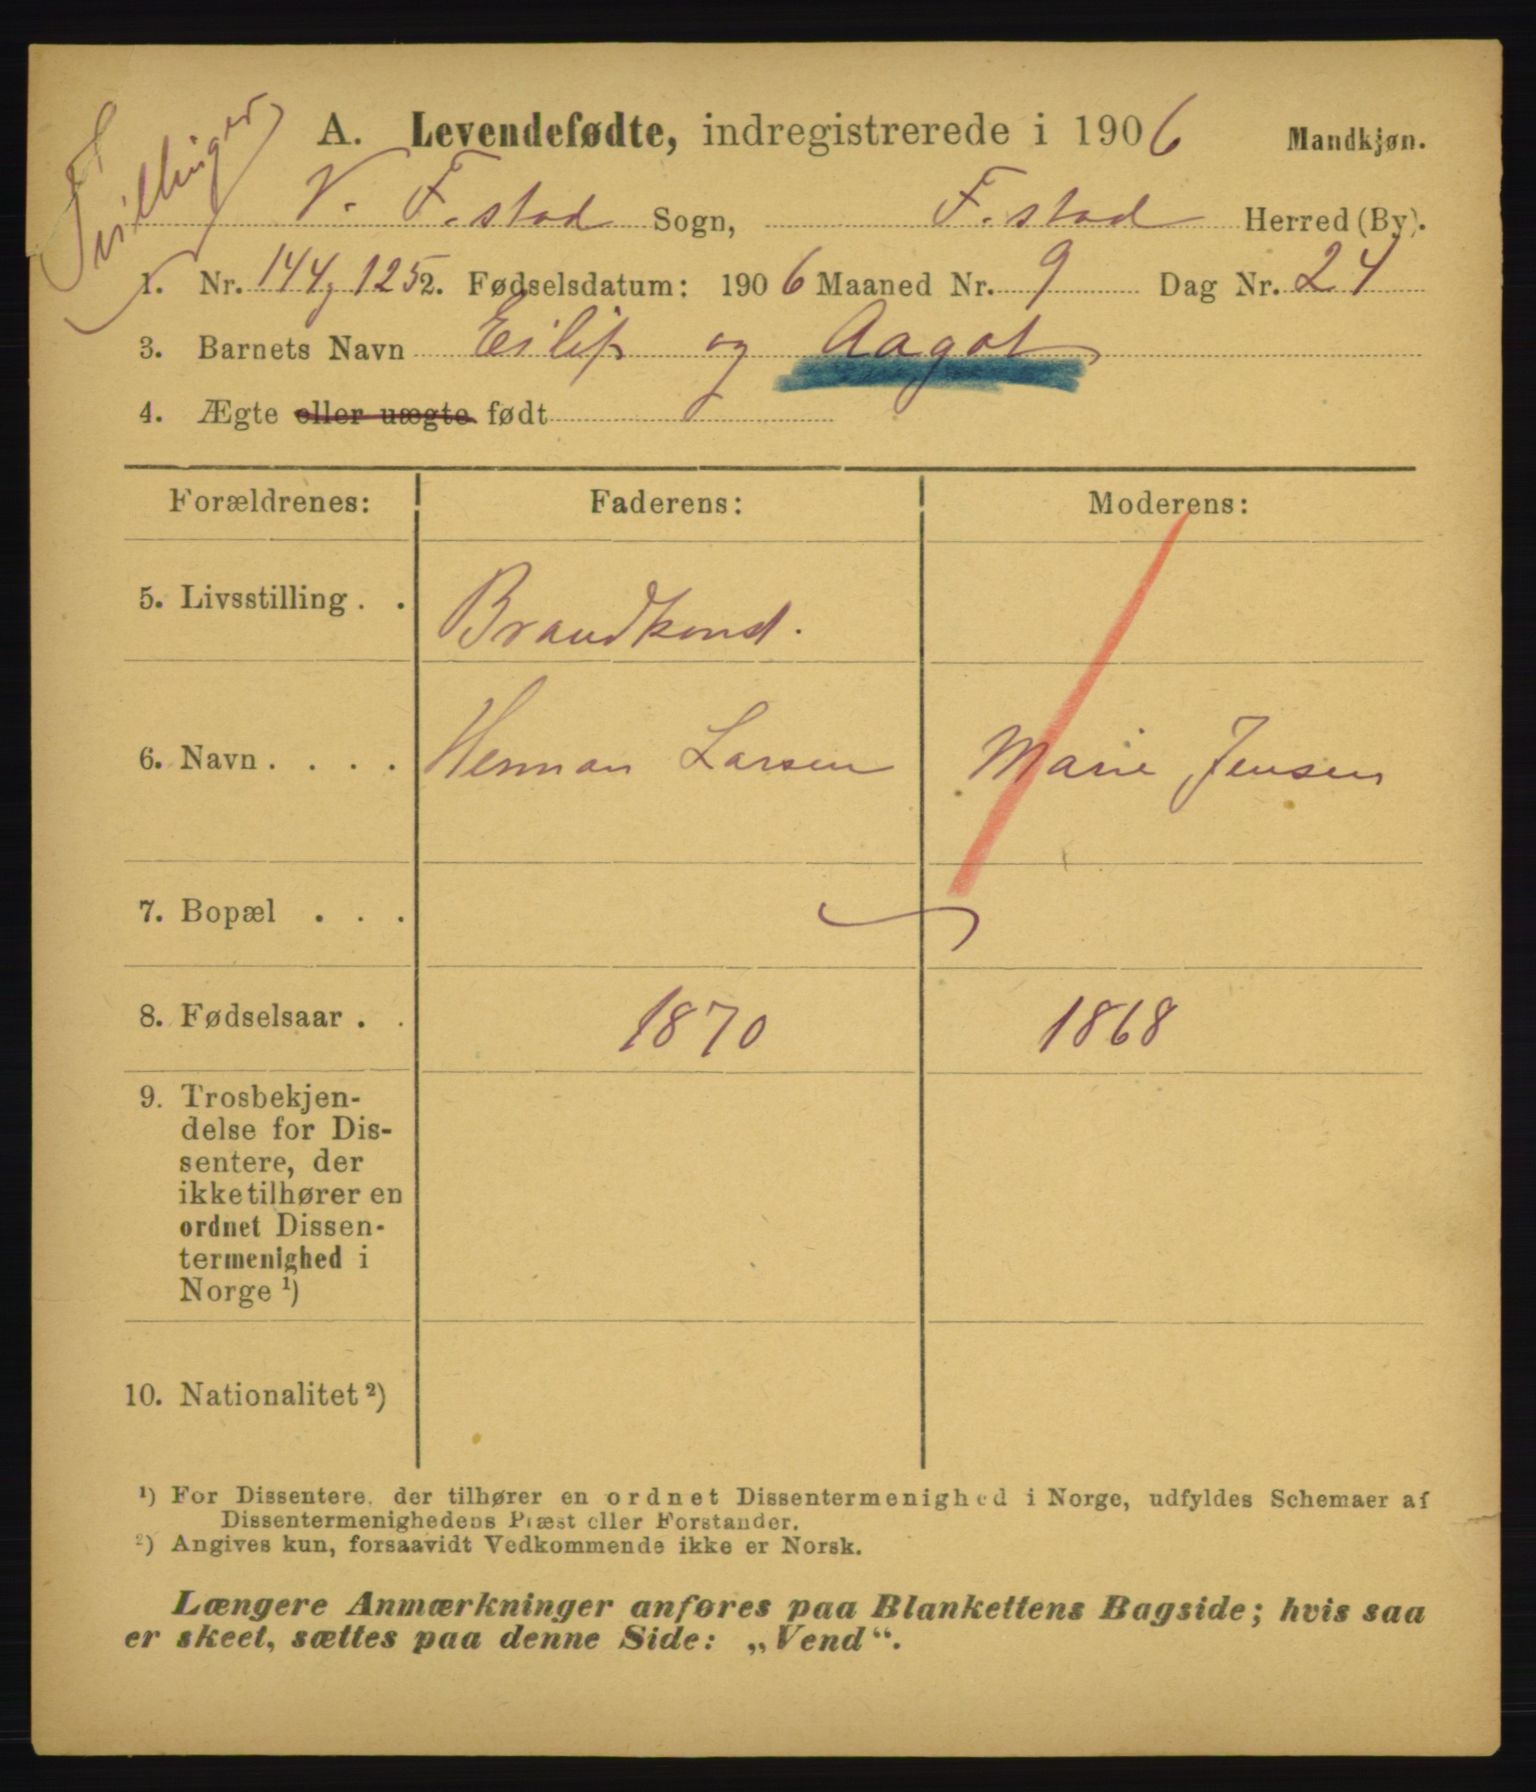 Tvillinger
A. Levendefødte, indregistrerede i 1906 Mandkjøn.
V. F.stad Sogn, F.stad Herred (By).
1. Nr. 144, 125 2. Fødselsdatum: 1906 Maaned Nr. 9 Dag Nr. 24
3. Barnets Navn Eilif og Aagot
4. Ægte eller uægte født
Forældrenes: Faderens: Moderens:
5. Livsstilling . . Brandkonst.
6. Navn . . . . Herman Larsen Marie Jensen
7. Bopæl . . .
8. Fødselsaar . . 1870 1868
9. Trosbekjen-
delse for Dis-
sentere, der
ikke tilhører en
ordnet Dissen-
termenighed i
Norge ¹)
10. Nationalitet ²)
¹) For Dissentere, der tilhører en ordnet Dissentermenighed i Norge, udfyldes Schemaer af
Dissentermenighedens Præst eller Forstander.
²) Angives kun, forsaavidt Vedkommende ikke er Norsk.
Længere Anmærkninger anføres paa Blankettens Bagside; hvis saa
er skeet, sættes paa denne Side: „Vend“.